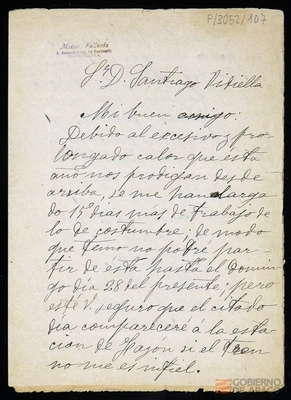 P/3052/107
Sr. D. Santiago Vidiella
Mi buen amigo:
Debido al excesivo y pro-
longado calor que este
año nos prodigan desde
arriba, se me han alarga
do 15 dias mas de trabajo de
lo de costumbre; de modo
que temo no podre par-
tir de esta hasta el domin
go día 28 del presente; pero
esté V. seguro que el citado
día compareceré á la esta-
cion de Mazón si el tren
no me es infiel.
GOBIERNO
DE ARAGON